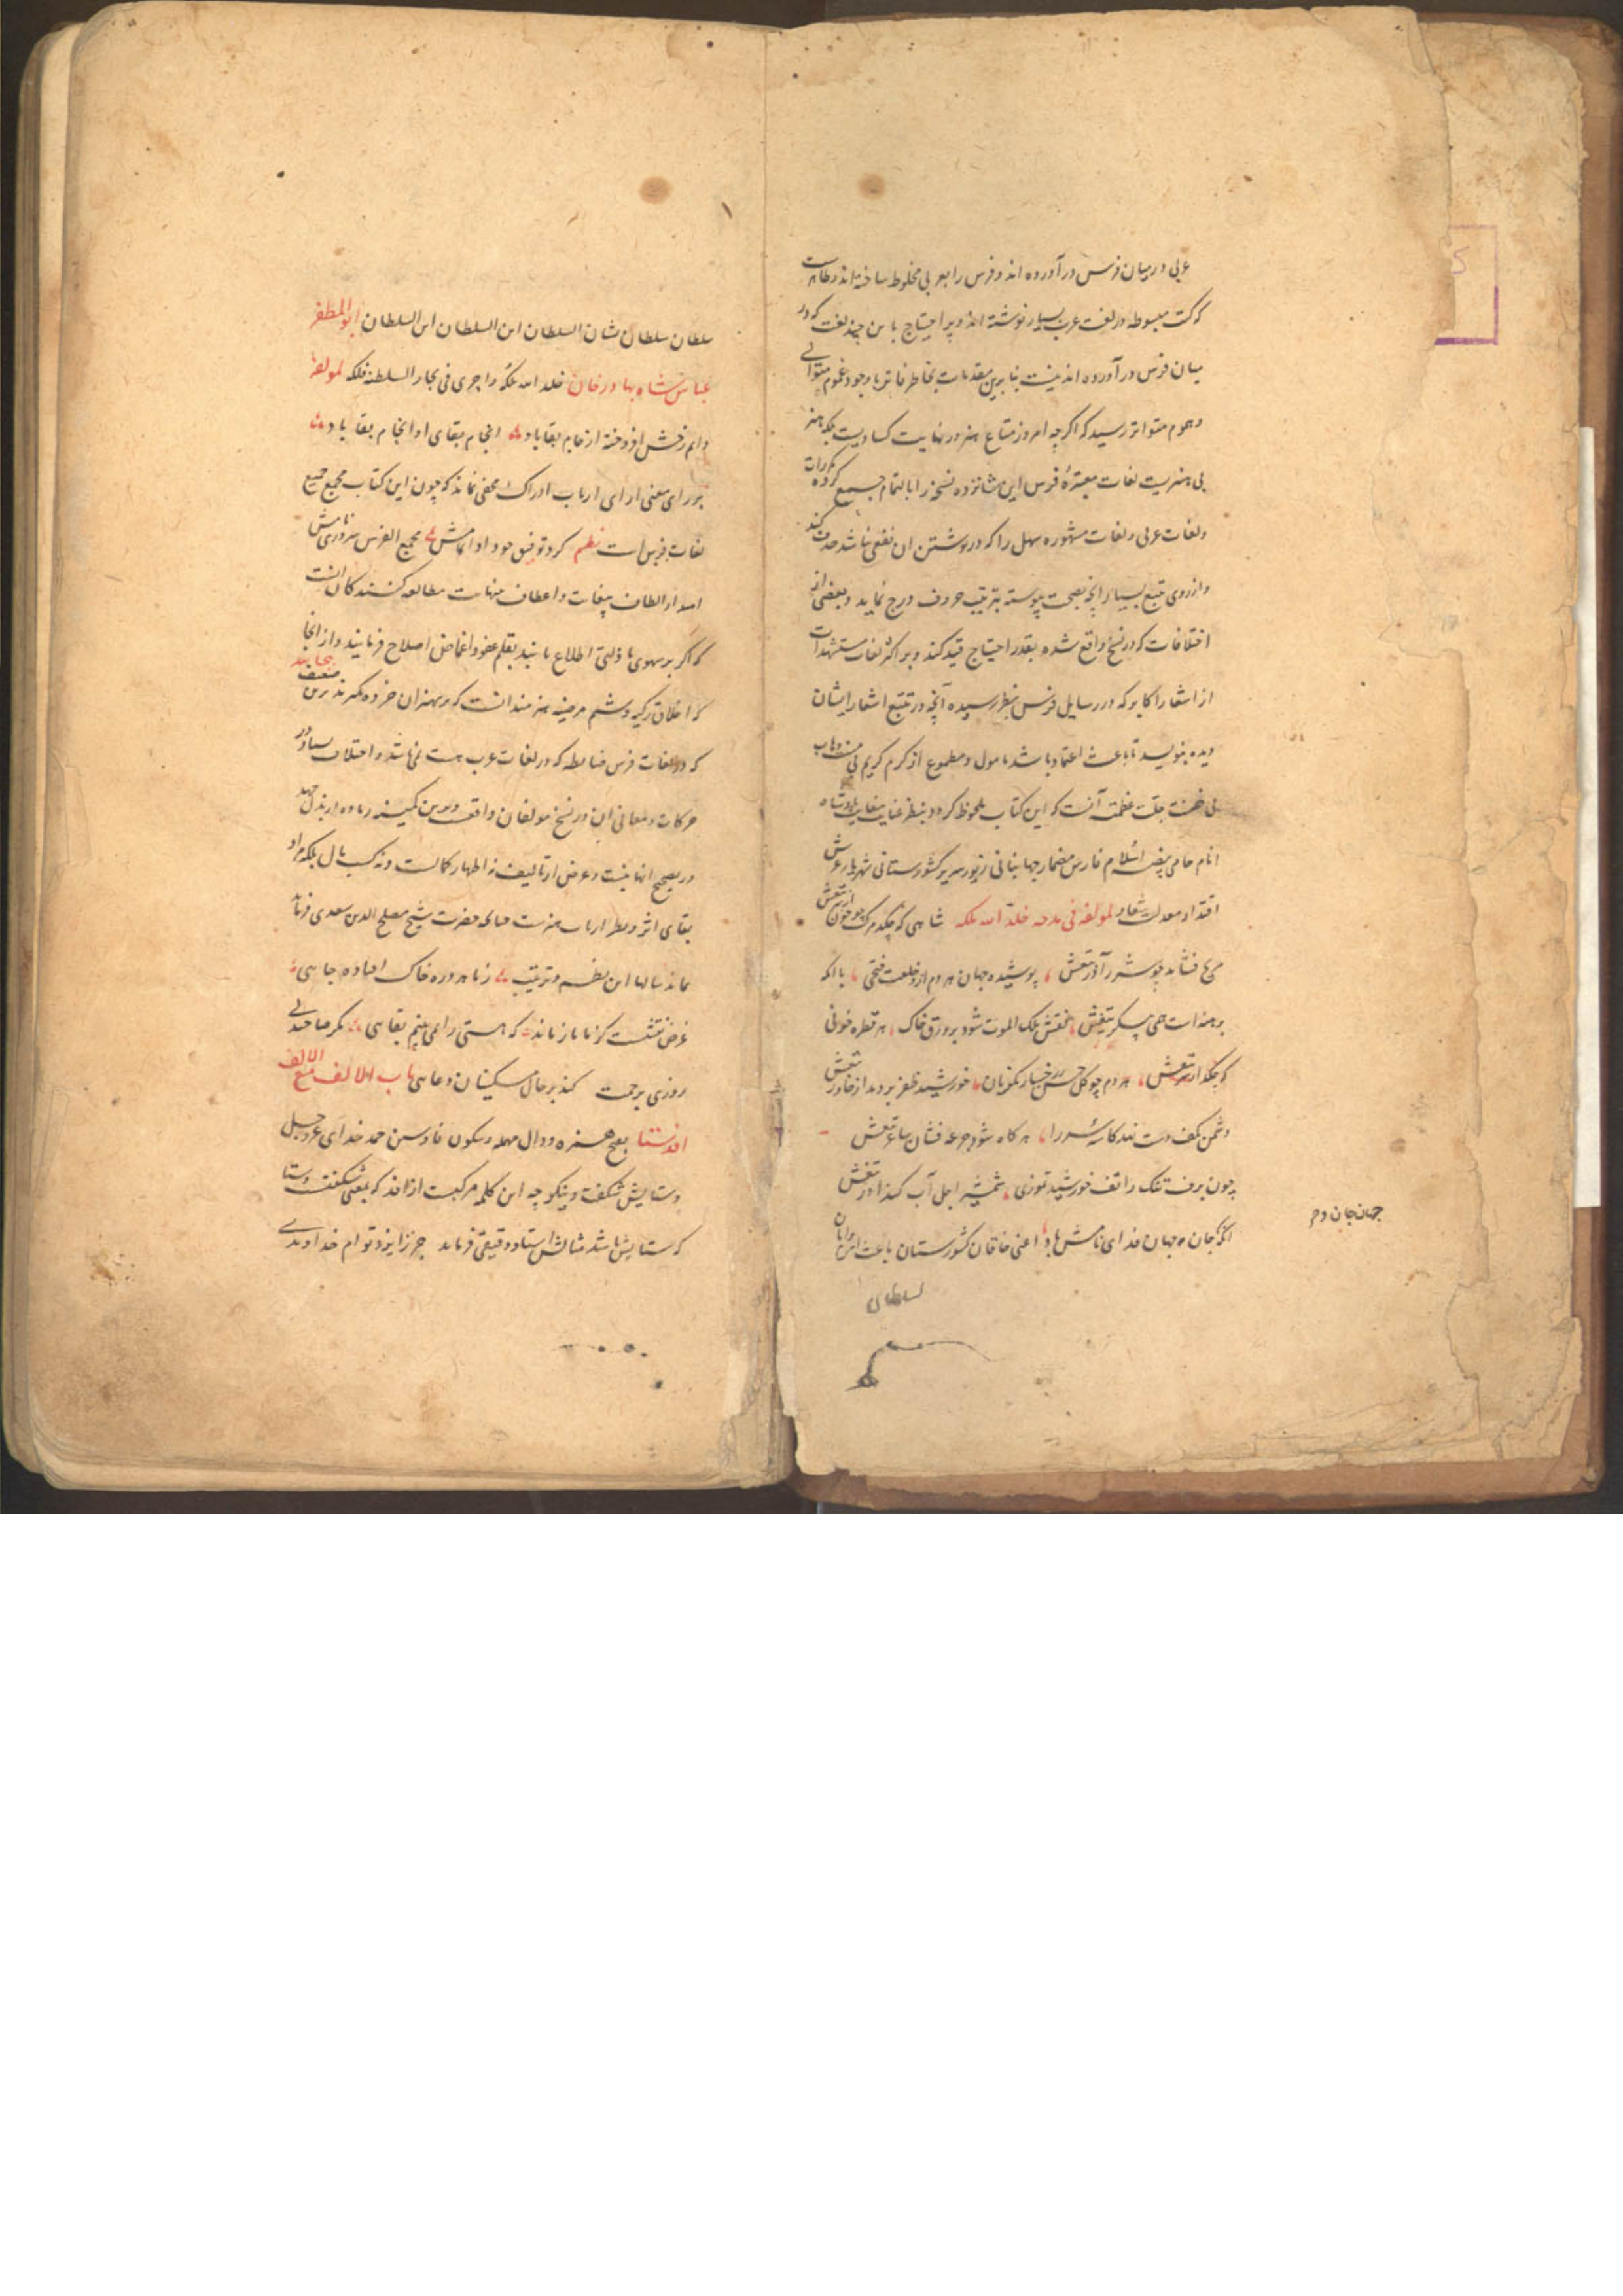 عربی در میان فرس در آورده اند و فرس را بعربی مخلوط ساخته اند و ظاهرست
که کتب مبسوطه در لغت عرب بسیار نوشته اند و پر احتیاج باین چند لغت که در
میان فرس در آورده اند نیست بنابرین مقدمات بخاطر فاتر با وجود غموم متوالی
و هموم متواتر رسید که اگرچه امروز متاع هنر در نهایت کسادیست بلکه هنر
بی هنریست لغات معتبرهٔ فرس این شانزده نسخه را بالتمام جمع کرده مکررات
و لغات عربی و لغات مشهوره سهل را که در نوشتن ان نفعی نباشد حذف کند
و از روی تتبع بسیار انچه بصحت پیوسته بترتیب حروف درج نماید و بعضی از
اختلافات که در نسخ واقع شده بقدر احتیاج قید کند و بر اکثر لغات مستشهدات
از اشعار اکابر که در رسایل فرس بنظر رسیده و آنچه در تتبع اشعار ایشان
دیده بنویسد تا باعث اعتماد باشد مامول و مطموع از کرم کریم بی منت و وهاب
بی ضنت جلت عظمته آنست که این کتاب ملحوظ کردد بنظر عنایت پادشاه
انام حامی بیضه اسلام فارس مضمار جهانبانی زیور سریر کشورستانی شهریار عرش
اقتدار معدلت شعار لمولفه فی مدحه خلد الله ملکه شاهی که چکد مرک چو خون از تیغش
مریخ فشاند چو شرر آذر تیغش پوشیده جهان هر دم ازو خلعت فتحی با انکه
برهنه است همی پیکر تیغش نقش ملک الموت شود بر ورق خاک هر قطره خونی
که چکد از سر تیغش هر دم چو کل حسن ز رخسار نکویان خورشید ظفر بردمد از خاور تیغش
دشمن بکف دست نهد کاسهٔ سر را هر کاه شود جرعه فشان ساغر تیغش
چون برف تنک را تف خورشید تموزی شمشیر اجل آب کند آذر تیغش
انکه جان و جهان فدای نامش باد اعنی خاقان کشورستان باعث امن و امان
جهان جان و هر
لسلطان
سلطان سلطان نشان السلطان ابن السلطان ابن السلطان ابو المظفر
عباس شاه بهادر خان خلد الله ملکه و اجری فی بحار السلطنه فلکه لمولفه
دایم رخش افروخته از جام بقا باد انجام بقای او انجام بقا باد
بر رای معنی ارای ارباب ادراک مخفی نماند که چون این کتاب مجمع جمیع
لغات فرس است نظم کرد توفیق چو داد اتمامش مجمع الفرس سروری نامش
امید از الطاف بیغایت و اعطاف بینهایت مطالعه کنندکان انست
که اکر بر سهوی یا ذلتی اطلاع یابند بقلم عفو و اغماض اصلاح فرمایند و از انجا
که اخلاق زکیه و شیم مرضیه هنرمندانست که بر بیهنران خرده نکیرند برین ضعیف نیز بخایند
که در لغات فرس ضابطه که در لغات عرب هست نمی باشد و اختلاف بسیار در
حرکات و معانی ان در نسخ مولفان واقعست و برین کمینه زیاده از بذل جهد
در تصحیح انها نیست و غرض از تالیف نه اظهار کمالست و نه کسب مال بلکه مراد
بقای اثر و نظر ارباب هنرست چنانکه حضرت شیخ مصلح الدین سعدی فرماید
بماند سالها این نظم و ترتیب ز ما هر ذره خاک افتاده جایی
غرض نقشیست کز ما باز ماند که هستی را نمی بینم بقایی مکر صاحبدلی
روزی برحمت کند بر حال مسکینان دعایی باب الالف مع الالف
افدستا بفتح همزه و دال مهمله و سکون فا و سین حمد خدای عز و جل
و ستایش شکفت و نیکو چه این کلمه مرکبست از افد که بمعنی شکفتست و ستا
که ستایش باشد مثالش استاد دقیقی فرماید جز از ایزد توام خداوندی